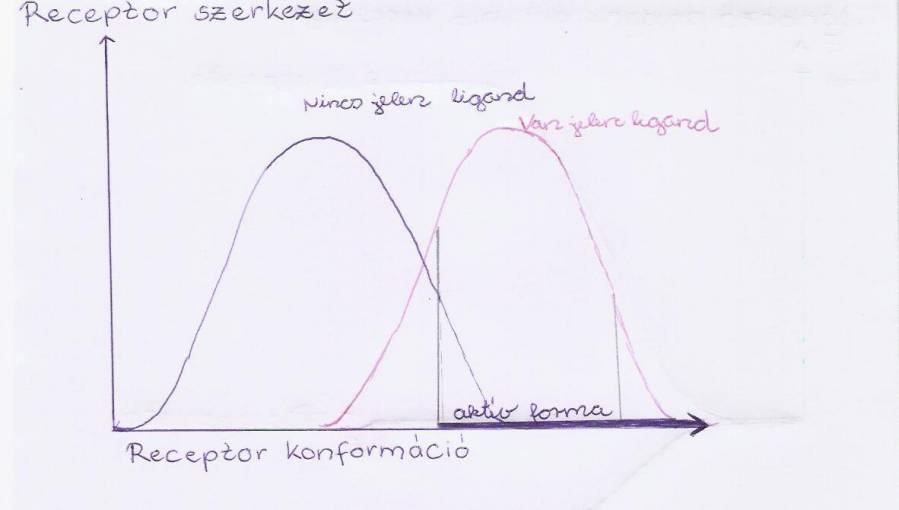 Receptor szerkezet
Nincs jelen ligand
Van jelen ligand
aktív forma
Receptor konformáció